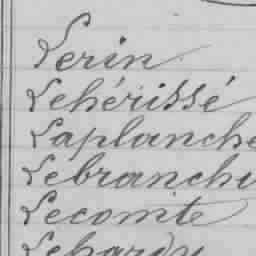 Perin
Lehérissé
Laplanche
Lebranchu
Lecomte
Lehardy